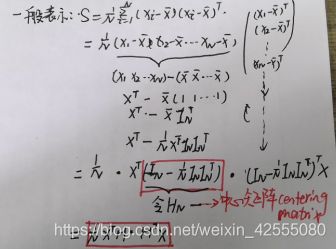 一般表示: S = 1/N Σ_{i=1}^{N} (xi - x̄)(xi - x̄)^T
= 1/N (x1 - x̄, x2 - x̄ … xN - x̄)
(x1 - x̄)^T
(x2 - x̄)^T
(xN - x̄)^T
(x1 x2 … xN) - (x̄ x̄ … x̄)
X^T - x̄ (1 1 … 1)
X^T - x̄ 1N^T
X^T - 1/N X^T 1N 1N^T
= 1/N · X^T (IN - 1/N 1N 1N^T) · (IN - 1/N 1N 1N^T)^T X
令HN → 中心矩阵 centering matrix
https://blog.csdn.net/weixin_42555080